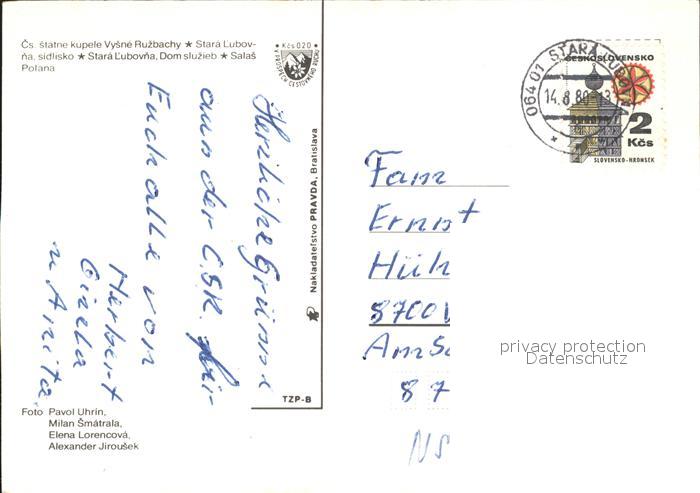 Čs. štatne kupele Vyšné Ružbachy ★ Stará Ľubov-
ňa, sidlisko ★ Stará Ľubovňa, Dom služieb ★ Salaš
Poľana
Kčs 0,20
Herzliche Grüsse
aus der ČSR. für
Euch alle von
Herbert
Gisela
u. Anita
Nakladateľstvo PRAVDA, Bratislava
TZP-B
Foto Pavol Uhrín,
Milan Šmátrala,
Elena Lorencová,
Alexander Jiroušek
064 01 STARÁ ĽUBOVŇA
14.8.80-13
ČESKOSLOVENSKO
2
Kčs
SLOVENSKO-HRONSEK
Fam
Ernst
Hüh
8700
Am S
8 7
privacy protection
Datenschutz